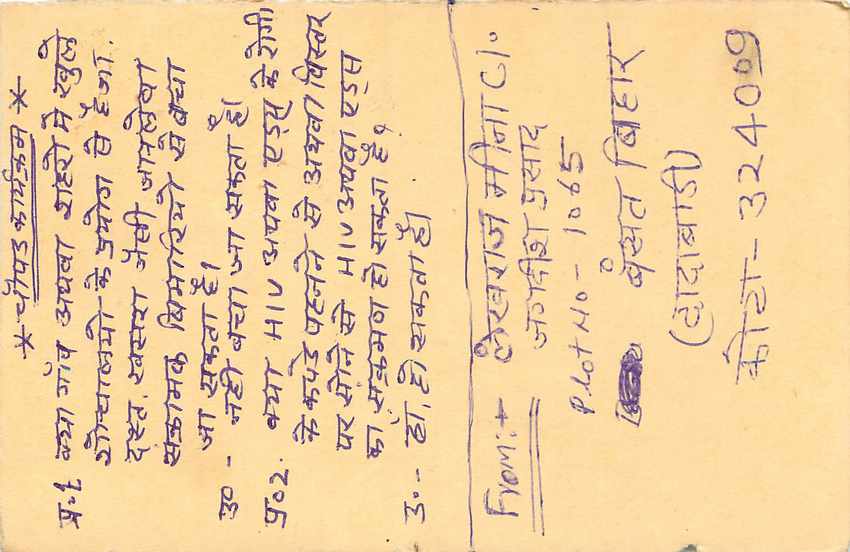 * चौपड कार्यक्रम *
प्र॰1 क्या गांव अथवा शहरो मे खुले
शौचालयो के उपयोग से हैजा,
दस्त, खसरा जैसी जानलेवा
सक्रामक बिमारियो से बचा
जा सकता है।
उ० - नही बचा जा सकता है।
प्र०2. क्या HIV अथवा एड्स के रोगी
के कपडे पहनने से अथवा बिस्तर
पर सोने से HIV अथवा एड्स
का संक्रमण हो सकता है?
उ॰- हाँ, हो सकता है।
From:→ लेखराज मीना C/o
जगदीश प्रसाद
Plot No - 1065
बंसत बिहार
(दादाबाडी)
कोटा - 324009